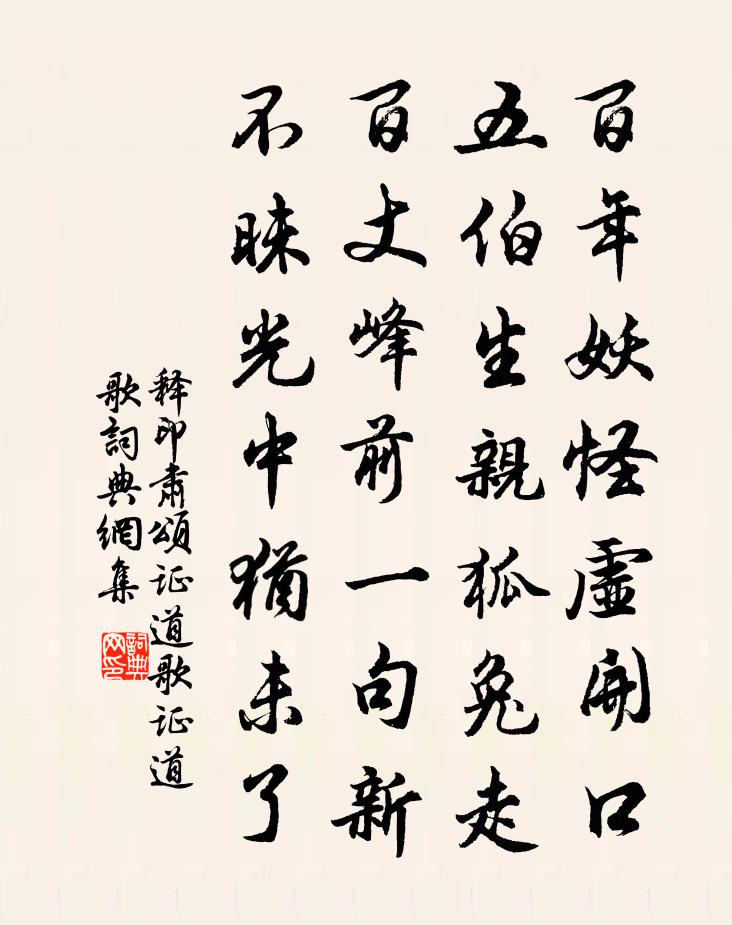 百年妖怪虛開口
五伯生親狐兔走
百丈峰前一句新
不昧光中猶未了
释印肅頌证道歌证道
歌詞典網集
詞典
网印